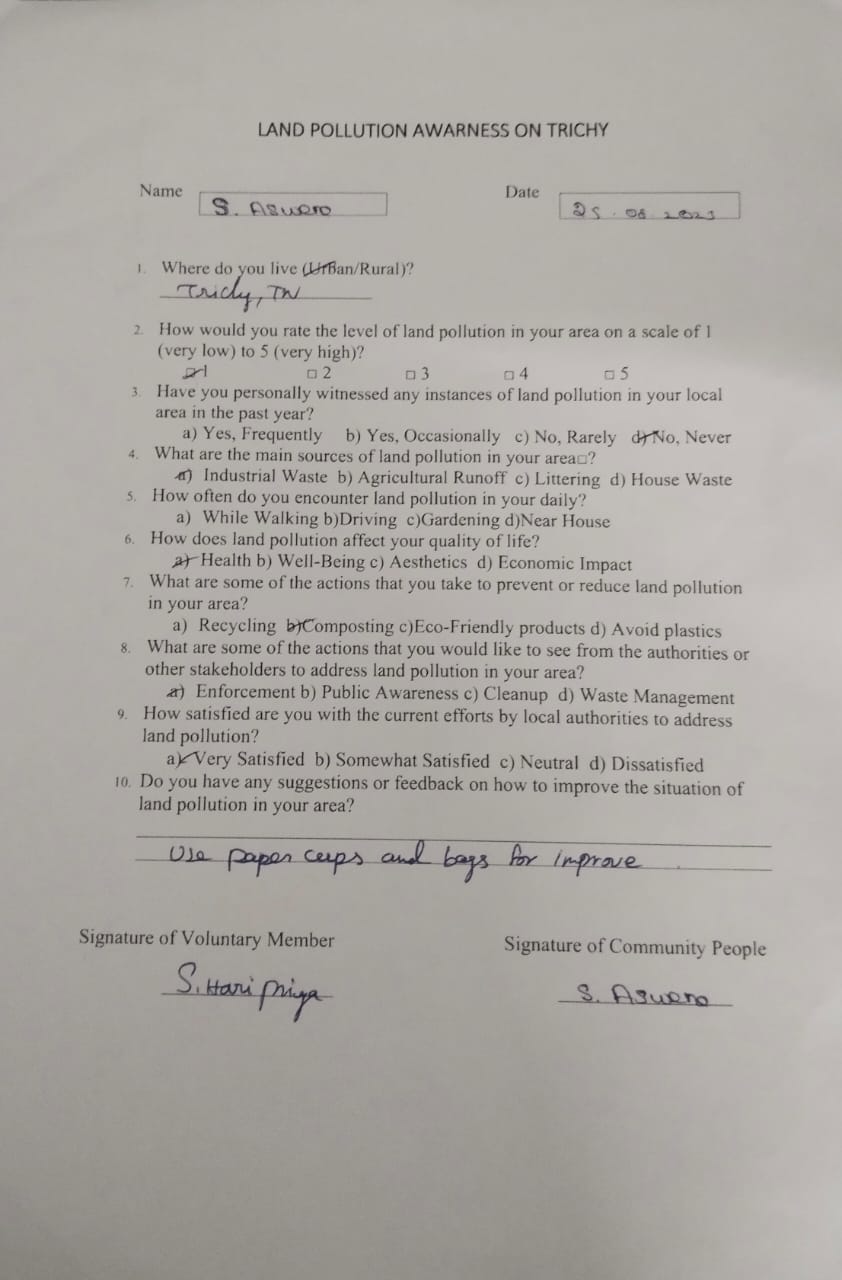 LAND POLLUTION AWARNESS ON TRICHY
Name
S.
Date
25.08.2023
1. Where do you live (Urban/Rural)?
Trichy, TN
2. How would you rate the level of land pollution in your area on a scale of 1
(very low) to 5 (very high)?
□ 1 □ 2 □ 3 □ 4 □ 5
3. Have you personally witnessed any instances of land pollution in your local
area in the past year?
a) Yes, Frequently b) Yes, Occasionally c) No, Rarely d) No, Never
4. What are the main sources of land pollution in your area□?
a) Industrial Waste b) Agricultural Runoff c) Littering d) House Waste
5. How often do you encounter land pollution in your daily?
a) While Walking b)Driving c)Gardening d)Near House
6. How does land pollution affect your quality of life?
a) Health b) Well-Being c) Aesthetics d) Economic Impact
7. What are some of the actions that you take to prevent or reduce land pollution
in your area?
a) Recycling b)Composting c)Eco-Friendly products d) Avoid plastics
8. What are some of the actions that you would like to see from the authorities or
other stakeholders to address land pollution in your area?
a) Enforcement b) Public Awareness c) Cleanup d) Waste Management
9. How satisfied are you with the current efforts by local authorities to address
land pollution?
a) Very Satisfied b) Somewhat Satisfied c) Neutral d) Dissatisfied
10. Do you have any suggestions or feedback on how to improve the situation of
land pollution in your area?
Use paper cups and bags for improve
Signature of Voluntary Member
Signature of Community People
S. Hari priya
S.